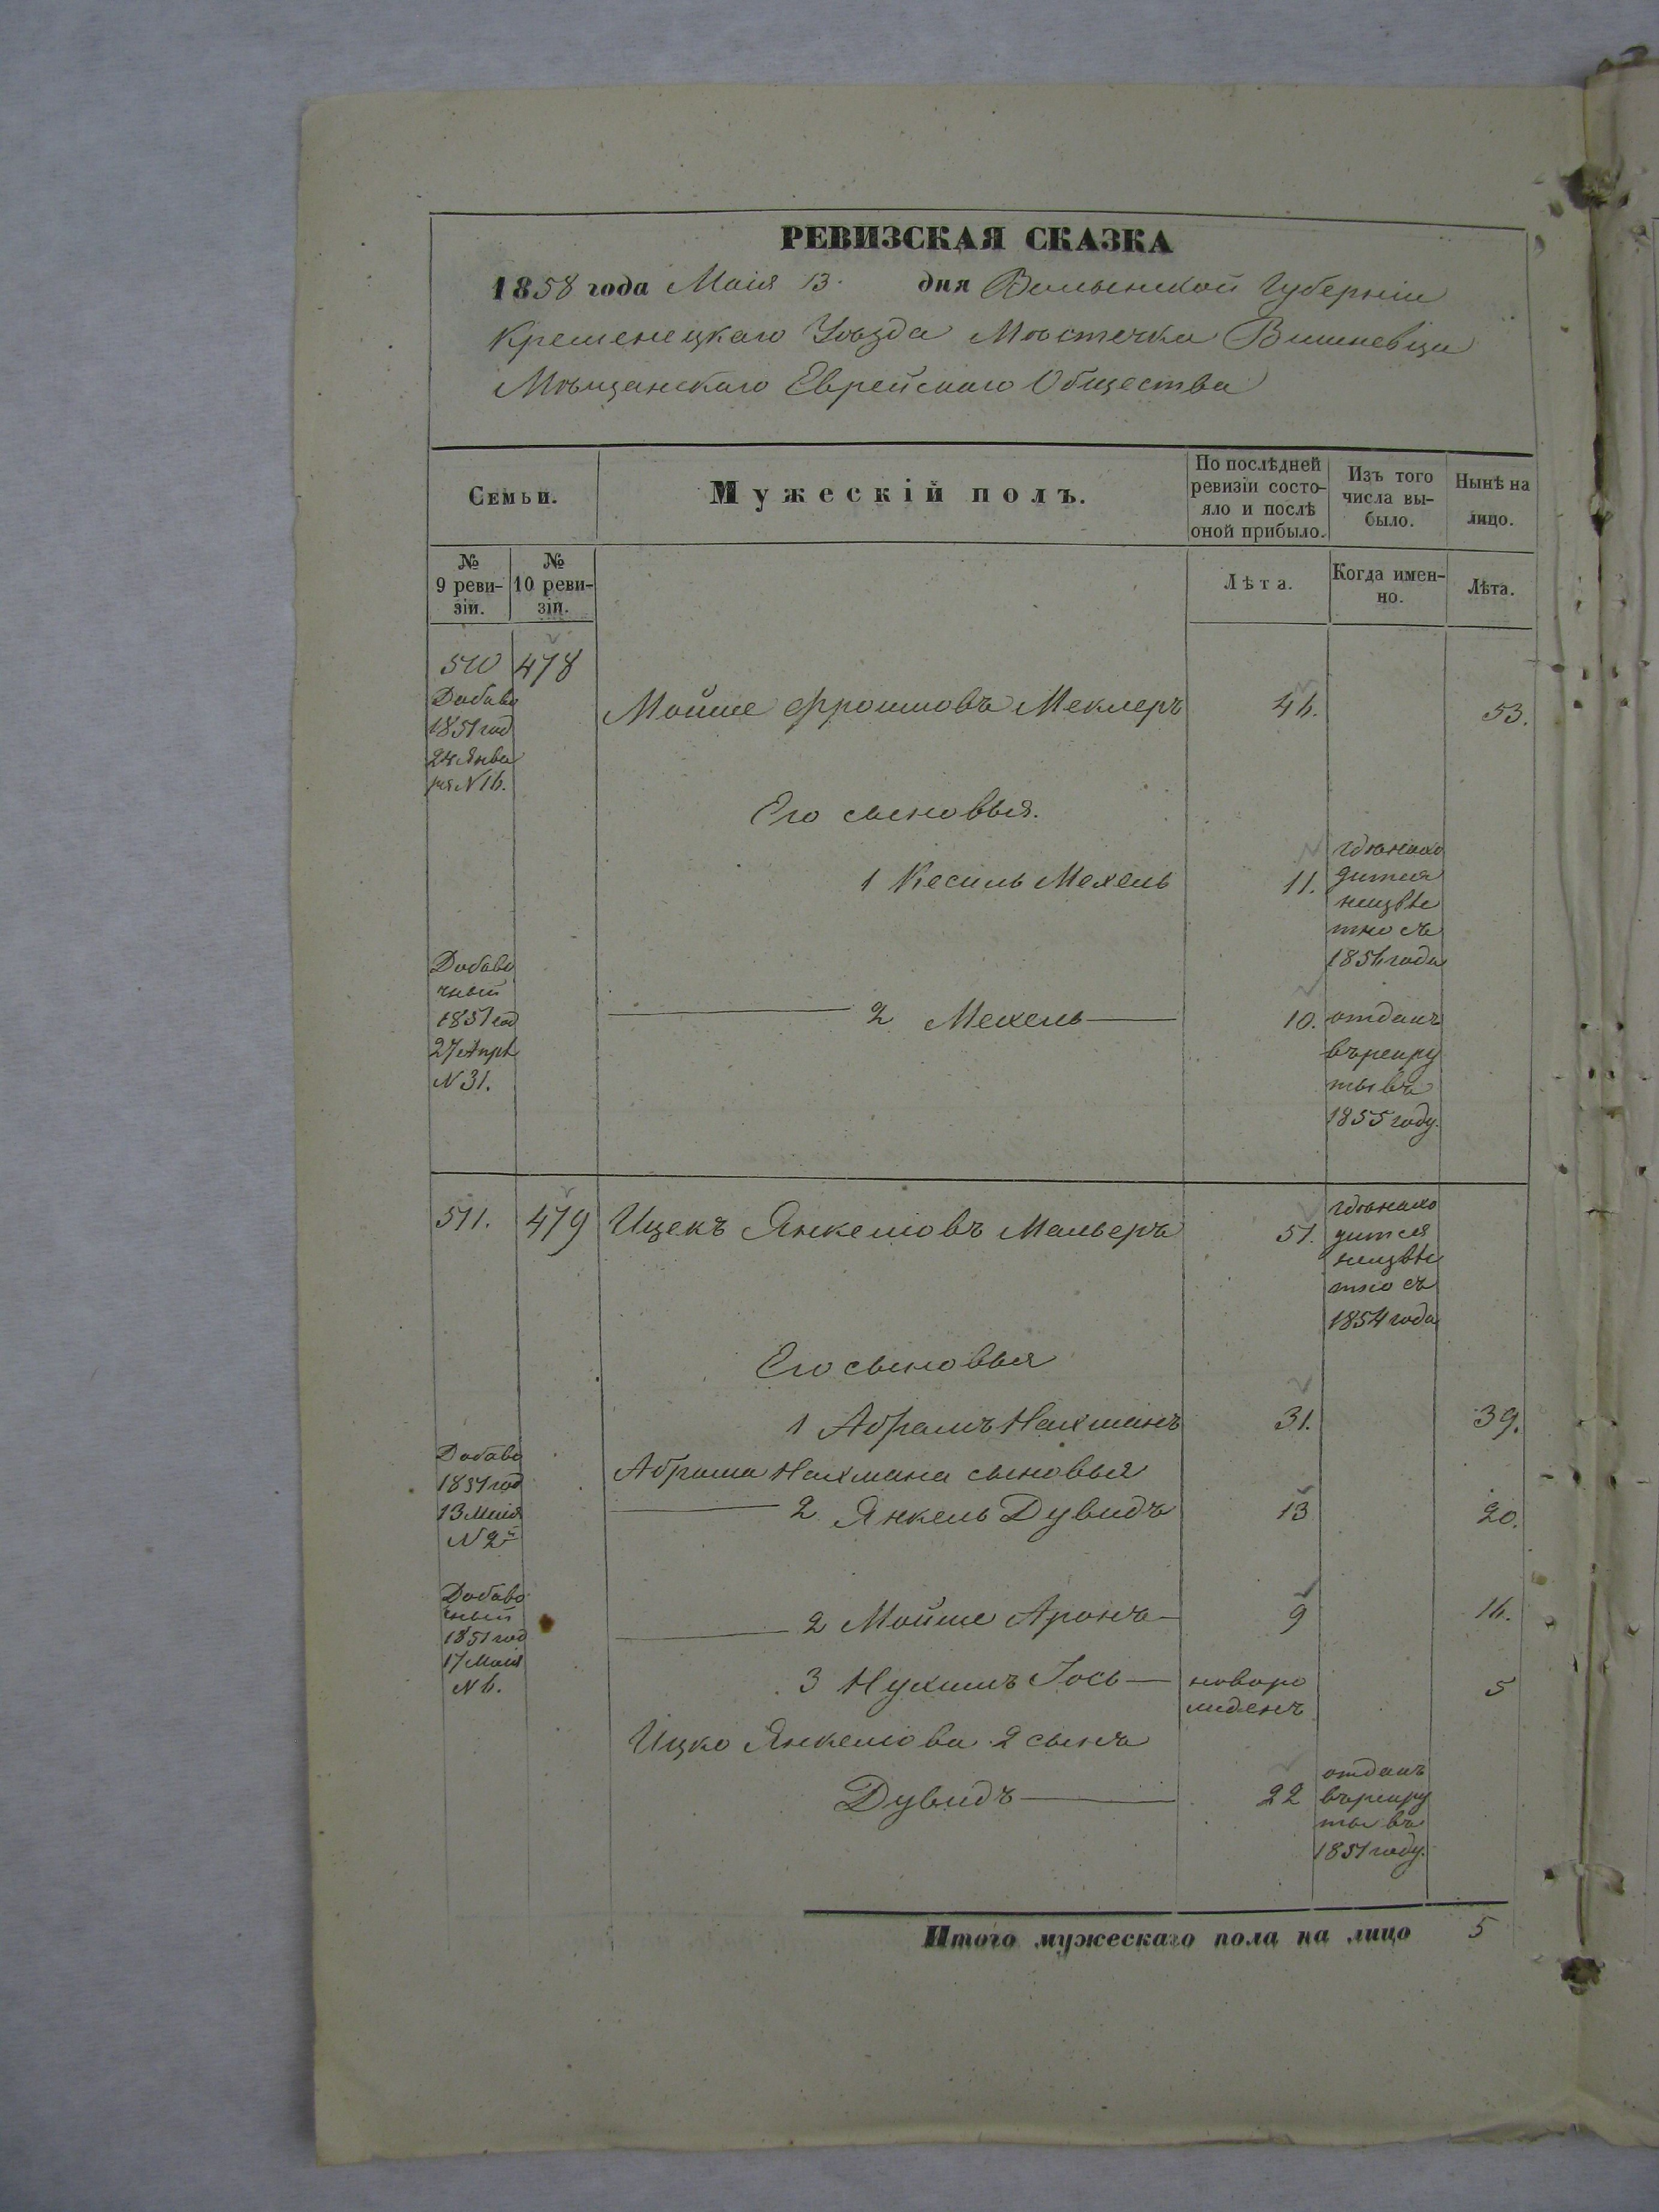 РЕВИЗСКАЯ СКАЗКА
1858 года Маія 13. дня Волынской Губерніи
Кременецкаго Уѣзда Мѣстечка Вишневца
Мѣщанскаго Еврейскаго Общества
Семьи.
Мужескій полъ.
По послѣдней
ревизіи состо-
яло и послѣ
оной прибыло.
Изъ того
числа вы-
было.
Нынѣ на
лицо.
№
9 реви-
зіи.
№
10 реви-
зіи.
Лѣта.
Когда имен-
но.
Лѣта.
510 478
Добаво
1851 год
24 Янва
ря N 16.
Мойше Фроимовъ Меклеръ 46. 53.
Его сыновья.
1 Кесиль Мехель 11.
гдѣ нахо
дится
неизвѣс
тно съ
1856 года
Добаво
чный
1851 год
27 Апрѣ
N 31.
2 Мехель 10.
отданъ
въ рекру
ты въ
1855 году.
511. 479 Ицекъ Янкелiовъ Мальеръ 51.
гдѣ нахо
дится
неизвѣс
тно съ
1854 года
Его сыновья
1 Абрамъ Нахманъ 31. 39.
Добаво
1851 год
13 Маія
N 2й
Абрама Нахмана сыновья
2 Янкель Дувидъ 13 20.
Добаво
чный
1851 год
17 Маія
N 6.
2 Мойше Аронъ 9 16.
3 Нухимъ Іось новоро
жденъ 5
Ицко Янкелiова 2 сынъ
Дувидъ 22
отданъ
въ рекру
ты въ
1851 году.
Итого мужескаго пола на лицо 5